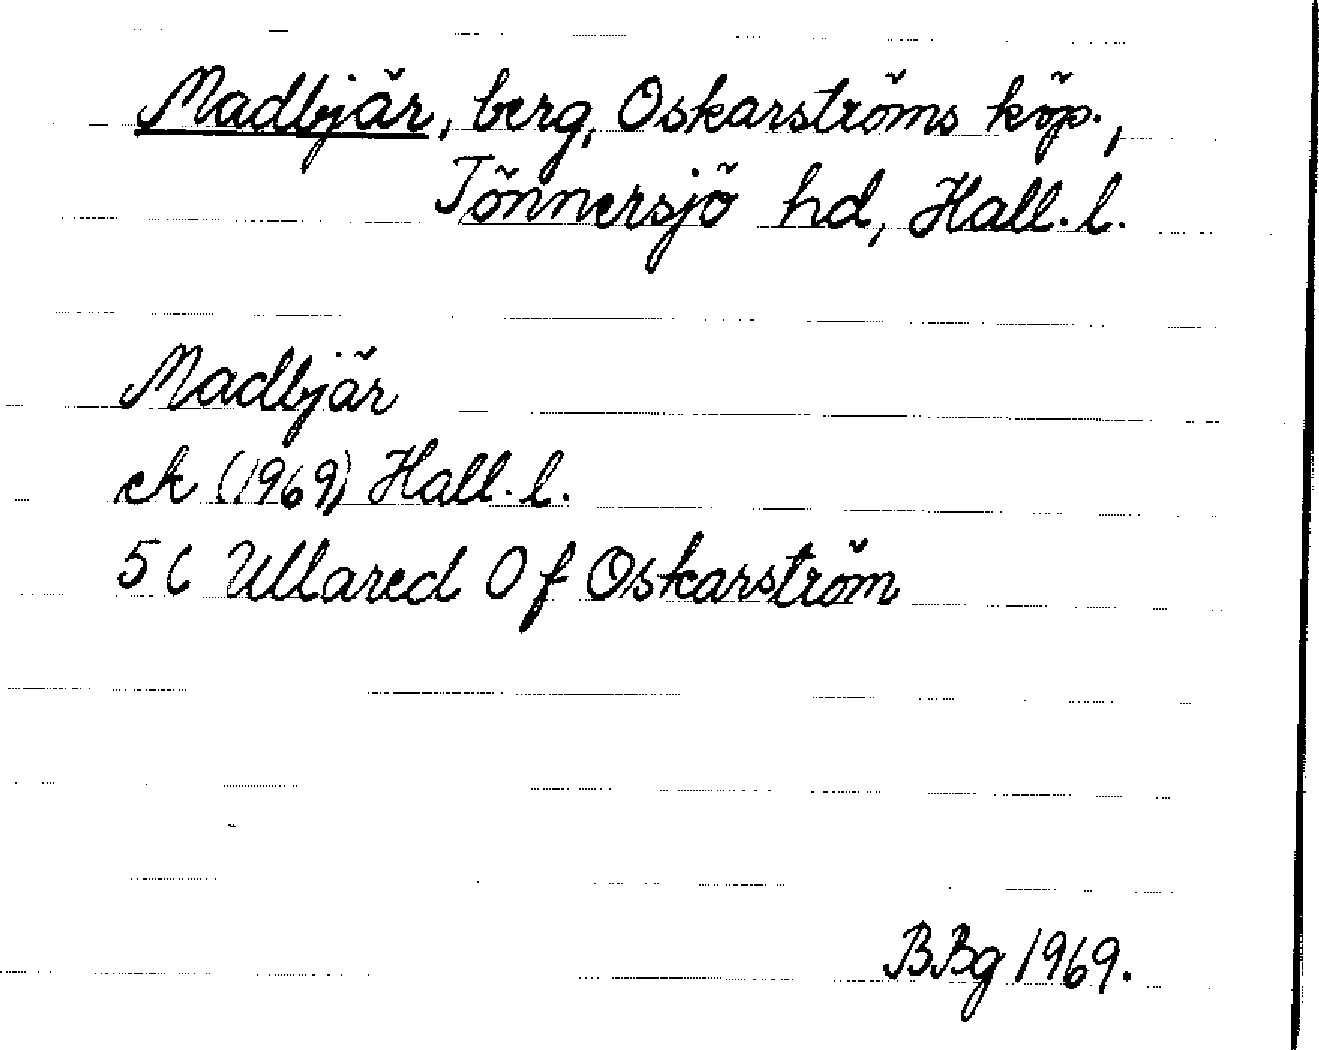 Madbjär, berg, Oskarströms köp.,
Tönnersjö hd, Hall. l.
Madbjär
ek (1969) Hall. l.
5C Ullared 0 f Oskarström
BBg 1969.